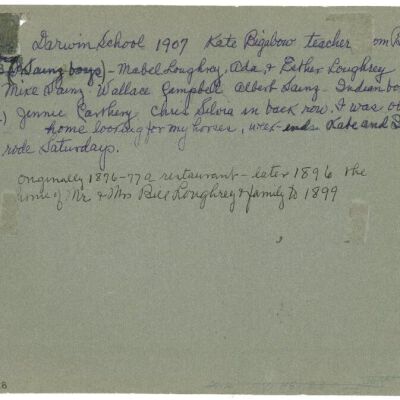 Darwin School 1907 Kate Bigabow teacher
Sainz boys) - Mabel Loughrey, Ada & Esther Loughrey
Mike Sainz. Wallace Campbell Albert Sainz Indian bo
) Jennie Carthery Chris Silvia in back row. I was
home looking for my horses, week-ends Kate and
rode Saturdays.
originally 1876-77 a restaurant - later 1896 the
home of Mr & Mrs Bill Loughrey & family to 1899
8